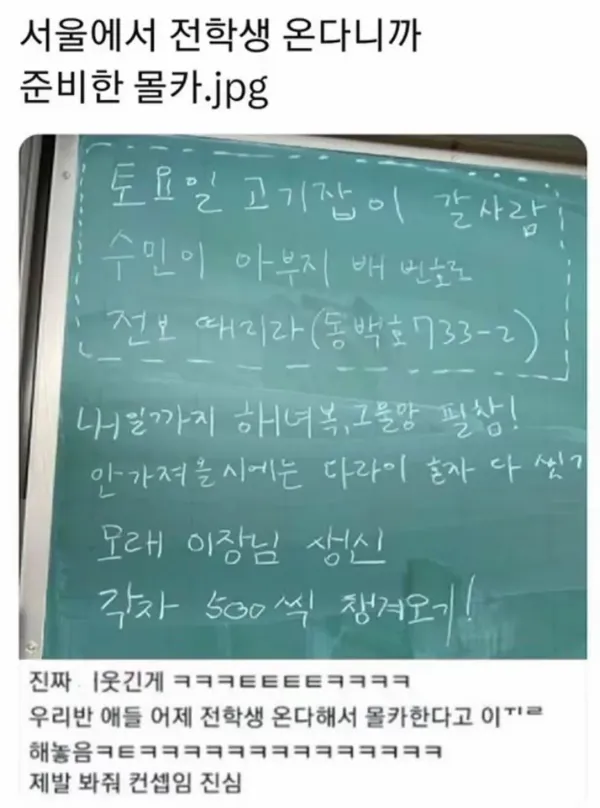 서울에서 전학생 온다니까
준비한 몰카.jpg
토요일 고기잡이 갈사람
수민이 아부지 배 번호로
전보 때리라(동백호733-2)
내일까지 해녀복,그물망 필참!
안가져올시에는 다라이 혼자 다 씻기
모래 이장님 생신
각자 500씩 챙겨오기!
진짜 ㅣ웃긴게 ㅋㅋㅋㅌㅌㅌㅌㅋㅋㅋㅋ
우리반 애들 어제 전학생 온다해서 몰카한다고 이ㄲㄹ
해놓음ㅋㅌㅋㅋㅋㅋㅋㅋㅋㅋㅋㅋㅋㅋㅋㅋㅋ
제발 봐줘 컨셉임 진심